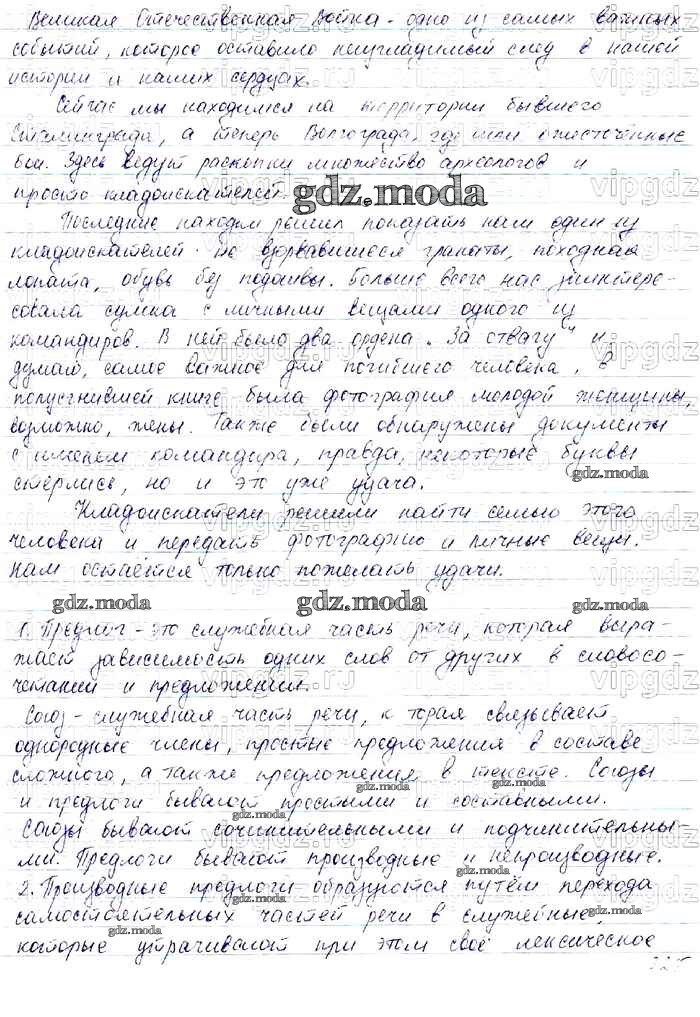 Великая Отечественная Война - одно из самых важных
событий, которое оставило неугладимый след в нашей
истории и наших сердцах.
Сейчас мы находимся на территории бывшего
Сталинграда, а теперь Волгограда, где шли ожесточённые
бои. Здесь ведут раскопки множество археологов и
просто кладоискателей.
gdz.moda
Последние находки решил показать нам один из
кладоискателей: не взорвавшиеся гранаты, походная
лопата, обувь без подошвы. Больше всего нас заинтере-
совала сумка с личными вещами одного из
командиров. В ней было два ордена „За отвагу" и
думаю, самое важное для погибшего человека, в
полусгнившей книге была фотография молодой женщины,
возможно, жены. Также были обнаружены документы
с именем командира, правда, некоторые буквы
стёрлись, но и это уже удача.
gdz.moda
Кладоискатели решили найти семью этого
человека и передать фотографию и личные вещи.
Нам остаётся только пожелать удачи.
gdz.moda gdz.moda gdz.moda
1. Предлог - это служебная часть речи, которая выра-
жает зависимость одних слов от других в словосо-
четании и предложении.
Союз - служебная часть речи, к торая связывает
однородные члены, простые предложения в составе
сложного, а также предложения в тексте. Союзы
и предлоги бывают простыми и составными.
gdz.moda
Союзы бывают сочинительными и подчинительны-
ми. Предлоги бывают производные и непроизводные.
gdz.moda
2. Производные предлоги образуются путём перехода
самостоятельных частей речи в служебные,
gdz.moda
которые утрачивают при этом своё лексическое
gdz.moda